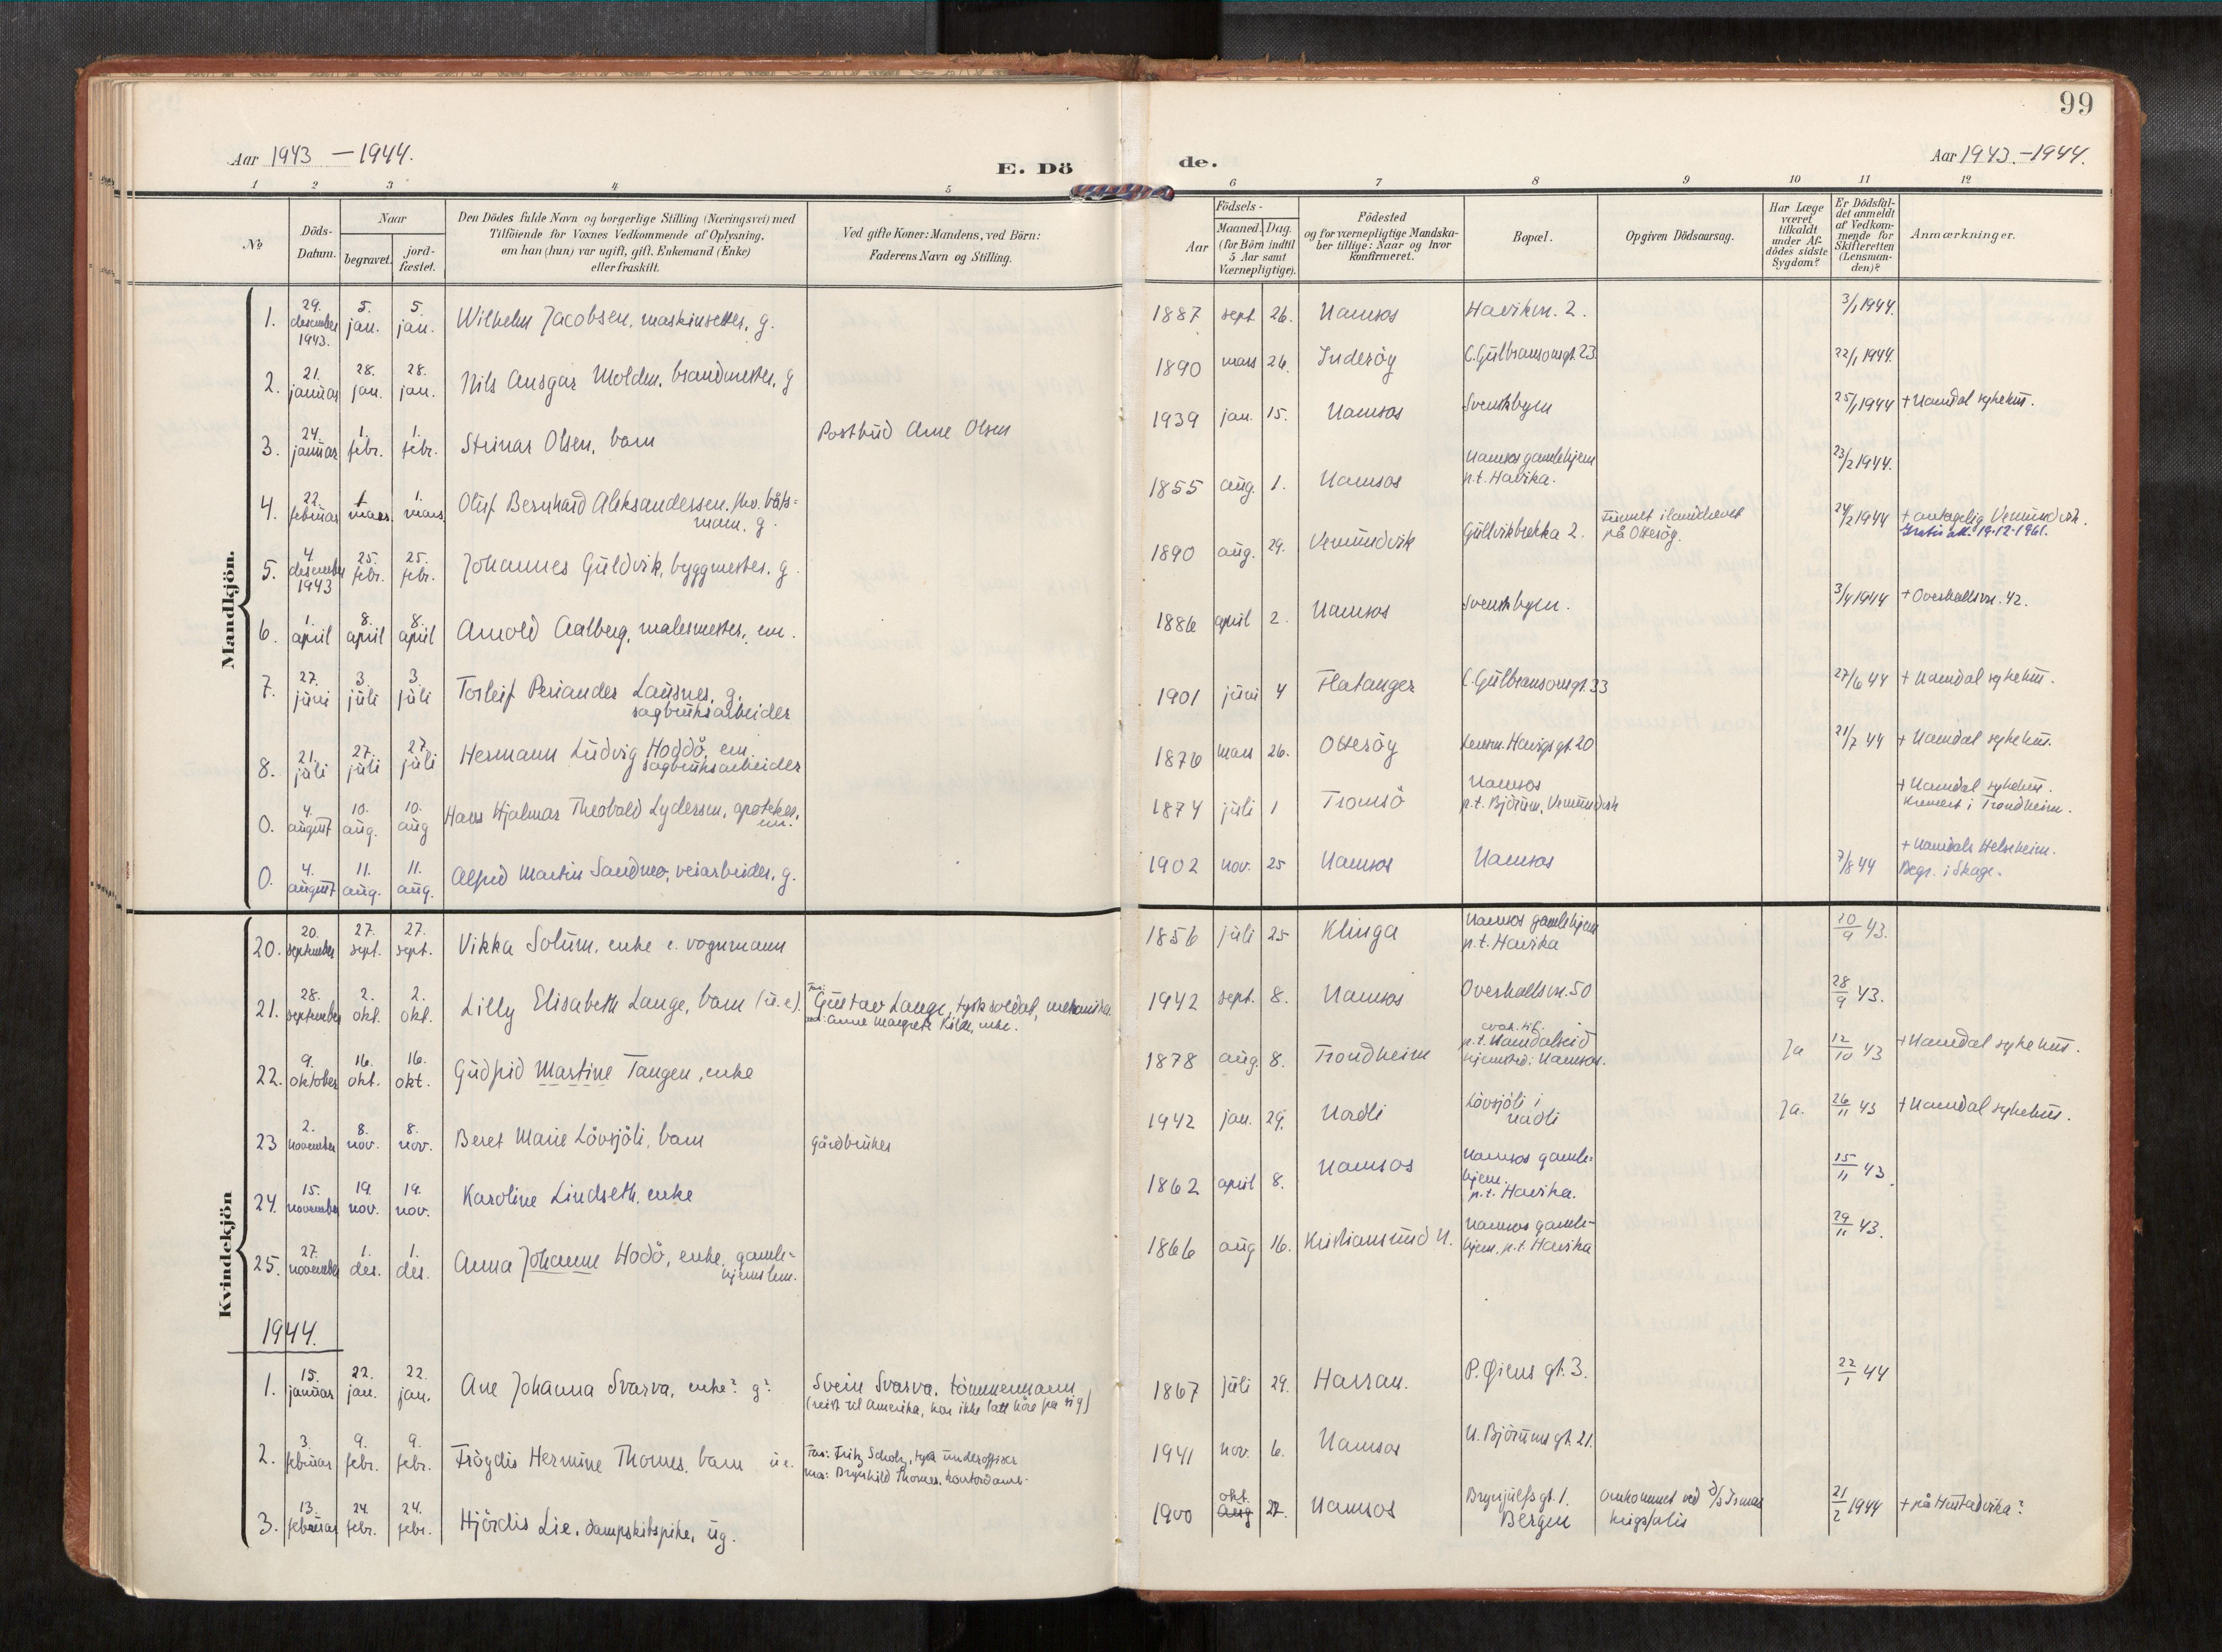 99
Aar 1943 - 1944.
E. Dö de.
Aar 1943. - 1944.
1 2 3 4 5 6 7 8 9 10 11 12
No
Döds-Datum.
Naar
begravet.
jord-fæstet.
Den Dödes fulde Navn og borgerlige Stilling (Næringsvei) med
Tilföiende for Voxnes Vedkommende af Oplysning,
om han (hun) var ugift, gift, Enkemand (Enke)
eller fraskilt.
Ved gifte Koner: Mandens, ved Börn:
Faderens Navn og Stilling.
Födsels-
Aar
Maaned. Dag.
(for Börn indtil
5 Aar samt
Værnepligtige).
Födested
og for værnepligtige Mandska-
ber tillige: Naar og hvor
Konfirmeret.
Bopæl.
Opgiven Dödsaarsag.
Har Læge
været
tilkaldt
under Af-
dödes sidste
Sygdom?
Er Dödsfal-
det anmeldt
af Vedkom-
mende for
Skifteretten
(Lensman-
den)?
Anmærkninger.
Mandkjön.
1. 29. desember 1943. 5. jan. 5. jan. Wilhelm Jacobsen, maskinsetter, g. 1887 sept. 26. Namsos Havikvn. 2. 3/1 1944.
2. 21. januar 28. jan. 28. jan. Nils Ansgar Molden, brandmester, g 1890 mars 26. Inderöy C. Gulbransonsgt. 23 22/1 1944.
3. 24. januar 1. febr. 1. febr. Steinar Olsen, barn Postbud Arne Olsen 1939 jan. 15. Namsos Svenskbyen 25/1 1944 + Namdal sykehus.
4. 22. februar 1 mars. 1. mars Oluf Bernhard Aleksandersen, fhv. båts=
mann, g. 1855 aug. 1. Namsos Namsos gamlehjem
p.t. Havika. 23/2 1944.
5. 4. desember 1943 25. febr. 25. febr. Johannes Guldvik, byggmester, g. 1890 aug. 29. Vemundvik Gullvikbrekka 2. Funnet ilanddrevet
på Otteröy. 24/2 1944 + antagelig Vemundvik.
19-12-1961.
6. 1. april 8. april 8. april Arnold Aalberg, malermester, em. 1886 april 2. Namsos Svenskbyen. 3/4 1944 + Overhallsvn. 42.
7. 27. juni 3. juli 3. juli Torleif Periander Lausnes, g.
sagbruksarbeider 1901 juni 4 Flatanger C. Gulbransonsgt. 33 27/6 44 + Namdal sykehus.
8. 21. juli 27. juli 27. juli Hermann Ludvig Hoddö, em
sagbruksarbeider 1876 mars 26. Otteröy Lensm. Havigs gt. 20 21/7 44 + Namdal sykehus.
0. 4. august 10. aug. 10. aug Hans Hjalmar Theobald Lydersen, apoteker,
em. 1874 juli 1 Tromsö Namsos
p.t. Björum, Vemundvik + Namdal sykehus.
Kremert i Trondheim.
0. 4. august 11. aug. 11. aug. Alfred Martin Sandmo, veiarbeider, g. 1902 nov. 25 Namsos Namsos 7/8 44 + Namdals Helseheim.
Begr. i Skage.
Kvindekjön
20. 20. september 27. sept. 27. sept. Vikka Solum, enke e. vognmann 1856 juli 25 Klinga Namsos gamlehjem
p.t. Havika 20/9 43.
21. 28. september 2. okt. 2. okt. Lilly Elisabeth Lange, barn (u.e). Far: Gustav Lange, tysk soldat, mekaniker
mor: Anne Margrete Kilde, enke. 1942 sept. 8. Namsos Overhallsvn. 50 28/9 43.
22. 9. oktober 16. okt. 16. okt. Gudrid Martine Tangen, enke 1878 aug. 8. Trondheim p.t. Namdalseid
hjemsted: Namsos. Ja 12/10 43 + Namdal sykehus.
23 2. november 8. nov. 8. nov. Beret Marie Lövsjöli, barn gårdbruker 1942 jan. 29. Nordli Lövsjöli i
Nordli Ja. 26/11 43 + Namdal sykehus.
24. 15. november 19. nov. 19. nov. Karoline Lindseth, enke 1862 april 8. Namsos Namsos gamle=
hjem.
p.t. Havika. 15/11 43.
25. 27. november 1. des. 1. des. Anna Johanne Hodö, enke, gamle-
hjemslem. 1866 aug 16. Kristiansund N. Namsos gamle-
hjem, p.t. Havika 29/11 43.
1944.
1. 15. januar 22. jan. 22. jan. Ane Johanna Svarva, enke? g? Svein Svarva, tömmermann
(reist til Amerika, har ikke latt höre fra sig) 1867 juli 29. Harran. P. Øiens gt. 3. 22/1 44
2. 3. februar 9. febr. 9. febr. Frögdis Hermine Thomes, barn u.e. Far: Fritz Scholz, tysk underoffiser
mor: Brynhild Thomes, kontordame. 1941 nov. 6. Namsos N. Björums gt. 21.
3. 13. februar 24. febr. 24. febr. Hjördis Lie, dampskibspike, ug. 1900 okt. Aug 22. Namsos Brynjulfs gt. 1.
Bergen Omkommet ved D/S Irmas
krigsforlis 21/2 1944 + på Hustadvika?